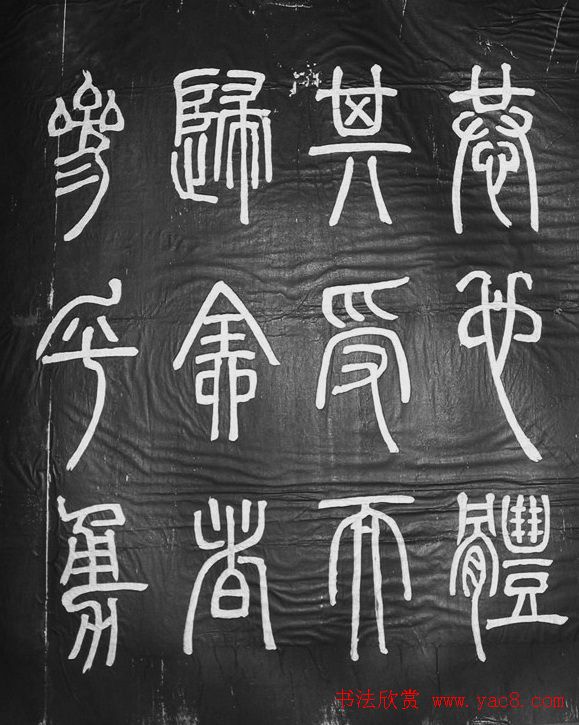 恭也體
其受而
歸全者
參乎勇
书法欣赏 www.yac8.com